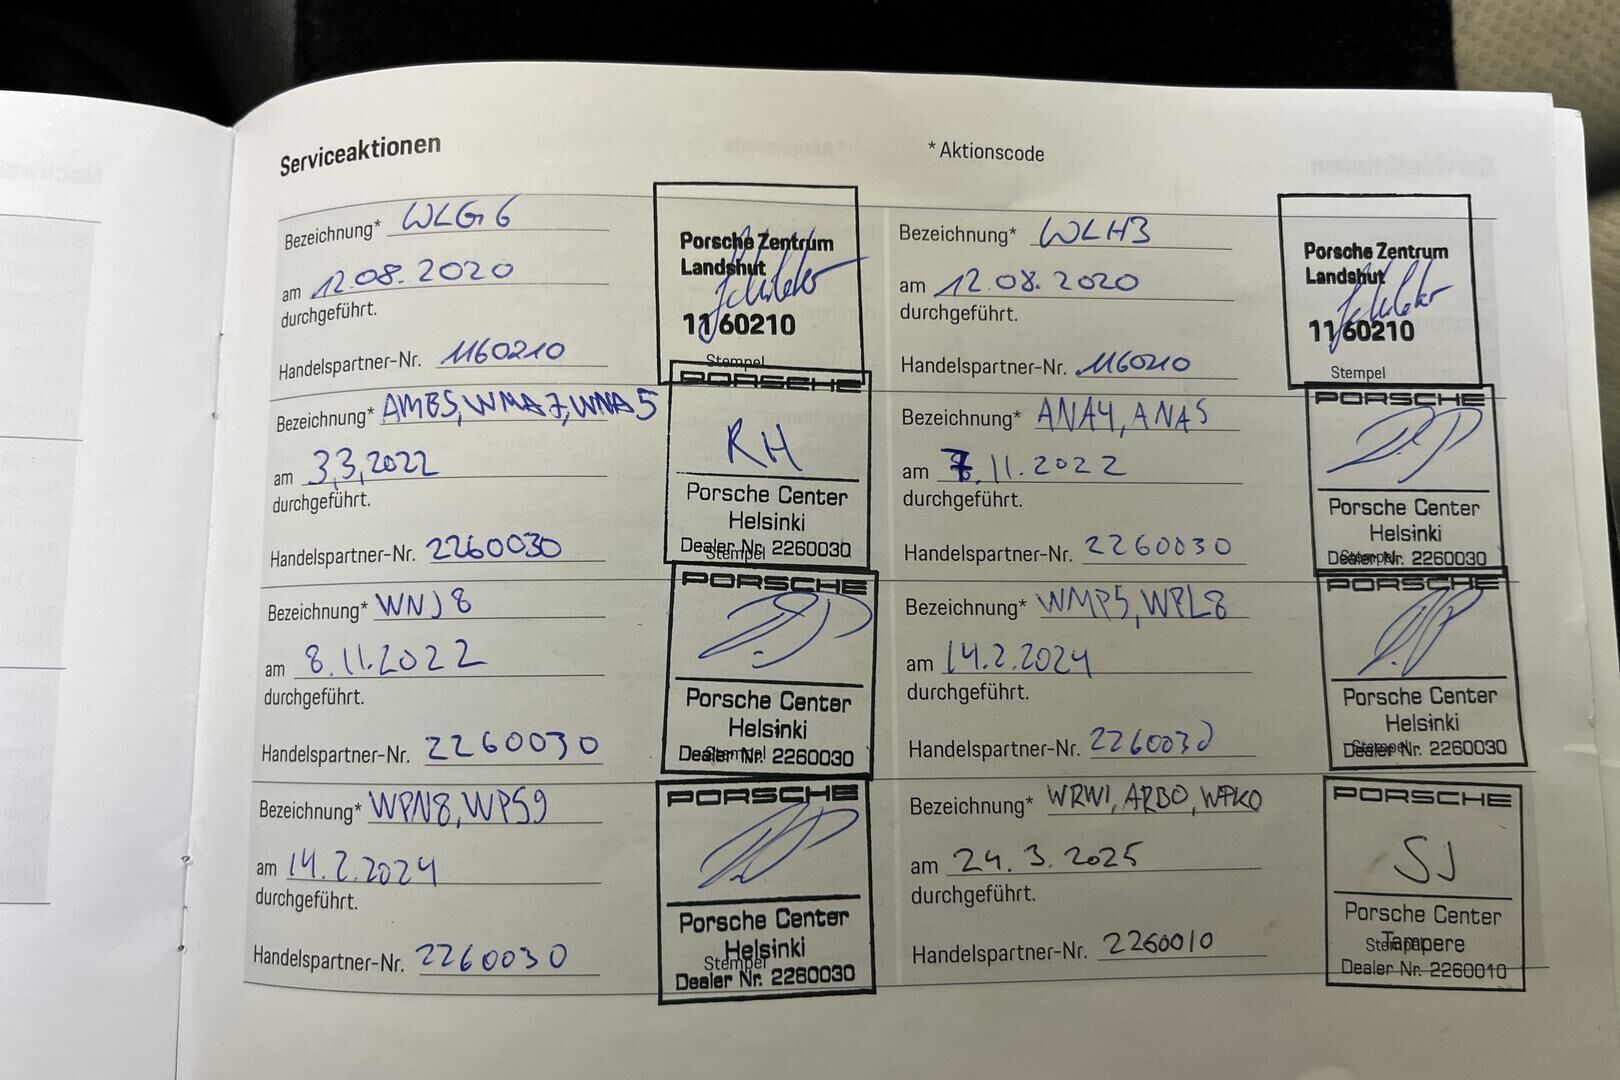 Serviceaktionen
* Aktionscode
Bezeichnung* WLG6
am 12.08.2020
durchgeführt.
Handelspartner-Nr. 1160210
Porsche Zentrum
Landshut
11 60210
Stempel
Bezeichnung* WLH3
am 12.08.2020
durchgeführt.
Handelspartner-Nr. 1160210
Porsche Zentrum
Landshut
11 60210
Stempel
Bezeichnung* AMB5, WMA7, WNA5
am 3,3,2022
durchgeführt.
Handelspartner-Nr. 2260030
PORSCHE
RH
Porsche Center
Helsinki
Dealer Nr. 2260030
Stempel
Bezeichnung* ANA4, ANA5
am 7.11.2022
durchgeführt.
Handelspartner-Nr. 2260030
PORSCHE
Porsche Center
Helsinki
Dealer Nr. 2260030
Stempel
Bezeichnung* WNJ8
am 8.11.2022
durchgeführt.
Handelspartner-Nr. 2260030
PORSCHE
Porsche Center
Helsinki
Dealer Nr. 2260030
Stempel
Bezeichnung* WMP5, WPL8
am 14.2.2024
durchgeführt.
Handelspartner-Nr. 2260030
PORSCHE
Porsche Center
Helsinki
Dealer Nr. 2260030
Stempel
Bezeichnung* WPN8, WPS9
am 14.2.2024
durchgeführt.
Handelspartner-Nr. 2260030
PORSCHE
Porsche Center
Helsinki
Stempel
Dealer Nr. 2260030
Bezeichnung* WRW1, ARB0, WPK0
am 24.3.2025
durchgeführt.
Handelspartner-Nr. 2260010
PORSCHE
SJ
Porsche Center
Tampere
Stempel
Dealer Nr. 2260010